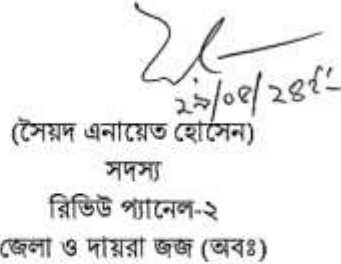 (সৈয়দ এনায়েত হোসেন)
সদস্য
রিভিউ প্যানেল-২
জেলা ও দায়রা জজ (অবঃ)